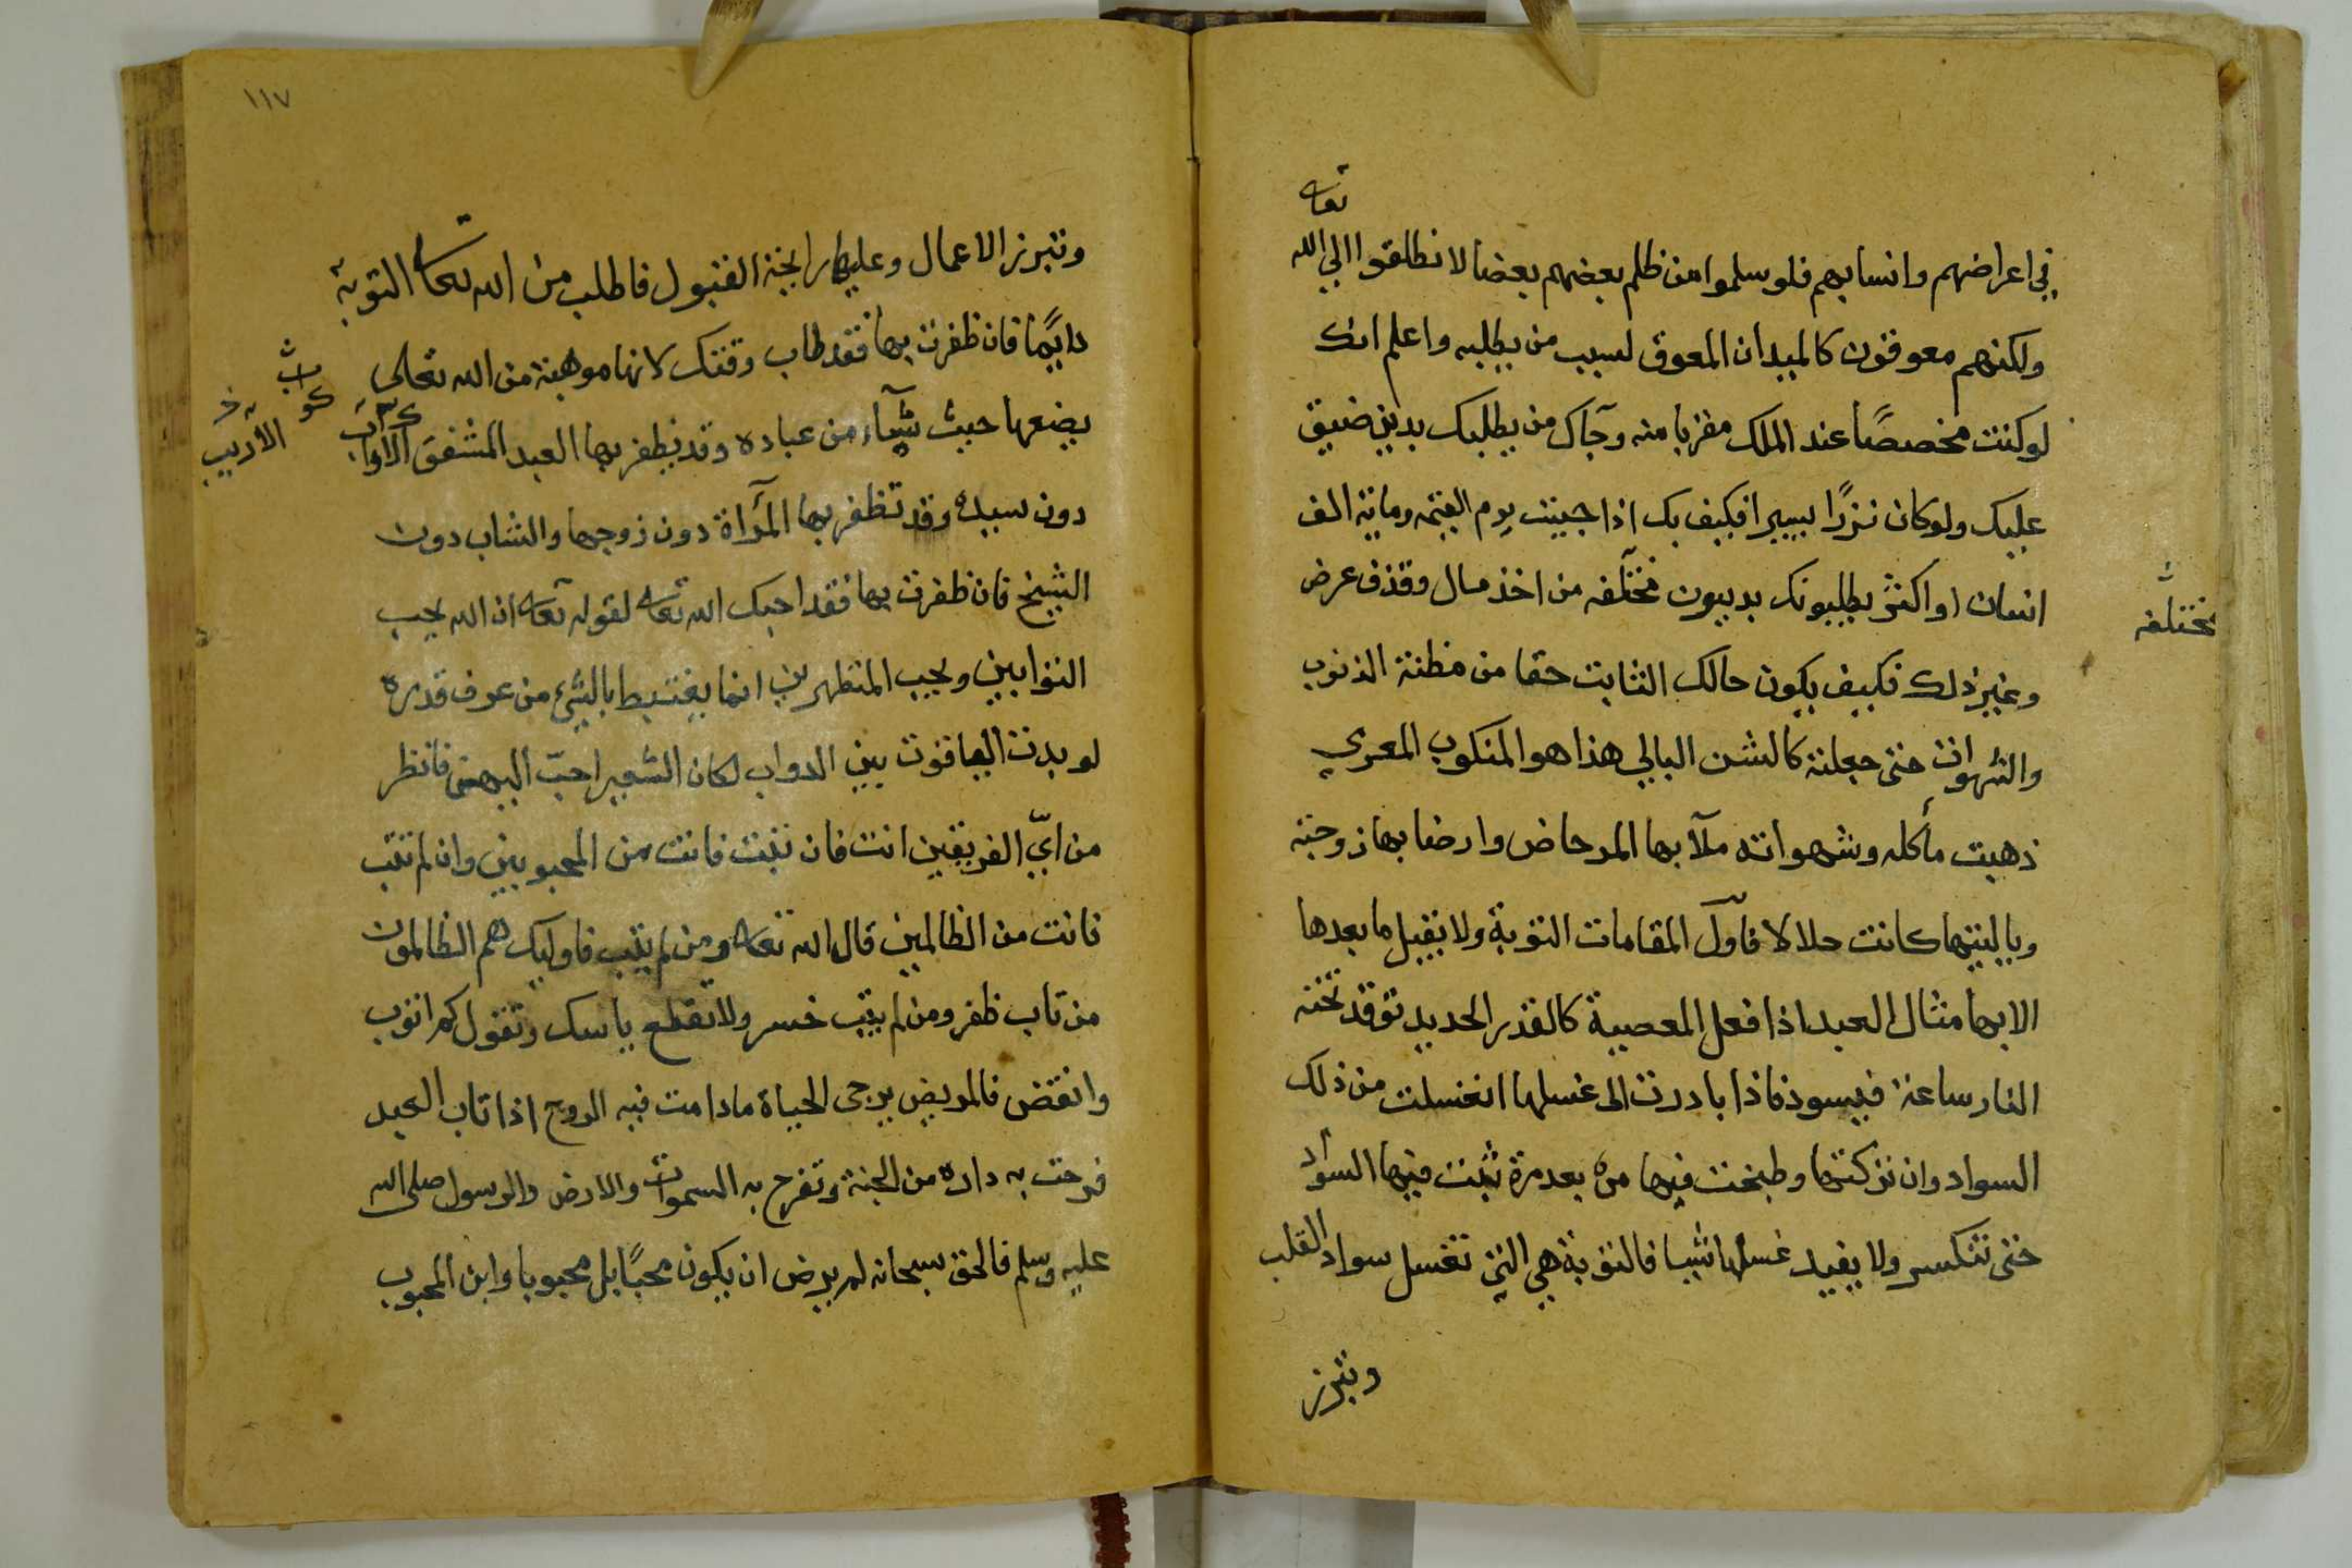 تعا
في اعراضهم وانسابهم فلو سلموا من ظلم بعضهم بعضا لانطلقوا الي الله
ولكنهم معوقون كالميدان المعوق لسبب من يطلبه واعلم انك
لو كنت مخصصًا عند الملك مقربا منه وجآك من يطلبك بدين ضيق
عليك ولو كان نزرًا يسيرا فكيف بك اذا جيئت يوم القيمة وماية الف
انسان او اكثر يطلبونك بديون مختلفه من اخذ مال وقذف عرض
مختلفه
وغير ذلك فكيف يكون حالك الثابت حقا من فطنة الذنوب
والشهوات حتى جعلته كالشن البالي هذا هو المنكوب المعري
ذهبت مأكله وشهواته ملآ بها المرحاض وارضا بها زوجته
وياليتها كانت حلالا فاول المقامات التوبة ولا يقبل ما بعدها
الا بها مثال العبد اذا فعل المعصية كالقدر الحديد توقد تحته
النار ساعة فيسود فاذا بادرت الى غسلها انغسلت من ذلك
السواد وان تركتها وطبخت فيها مره بعد مرة ثبت فيها السواد
حتى تتكسر ولا يفيد غسلها شيا فالتوبة هي التي تغسل سواد القلب
وتبرز
١١٧
وتبرز الاعمال وعليها رايحة القبول فاطلب من الله تعا التوبة
دايًما فان ظفرت بها فقد طاب وقتك لانها موهبة من الله تعالى
يضعها حيث يشآء من عباده وقد يظفر بها العبد المشفق الاواب
الأديب
دون سيده وقد تظفر بها المرآة دون زوجها والشاب دون
الشيخ فان ظفرت بها فقد احبك الله تعا لقوله تعا ان الله يحب
التوابين ويحب المتطهرين انما يغتبط بالشئ من عرف قدره
لو بدت اليواقيت بين الدواب لكان الشعير احبّ اليهم فانظر
من ايّ الفريقين انت فان تبت فانت من المحبوبين وان لم تتب
فانت من الظالمين قال الله تعا ومن لم يتب فاوليك هم الظالمون
من تاب ظفر ومن لم يتب خسر ولا تقطع ياسك وتقول كم اتوب
وانقض فالمريض يرجى الحياة ما دامت فيه الروح اذا تاب العبد
فرحت به داره من الجنة وتفرح به السموات والارض والرسول صلى الله
عليه وسلم فالحق سبحانه لم يرض ان يكون محبًا بل محبوبا واين المحبوب